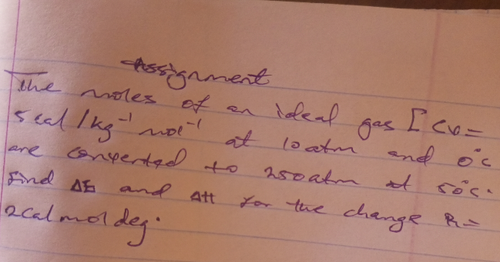 Assignment
The moles of an ideal gas [CV=
5 cal/kg⁻¹ mol⁻¹ at 10atm and 0°C
are converted to 250atm at 50°C.
find ΔE and ΔH for the change R=
2cal mol deg.